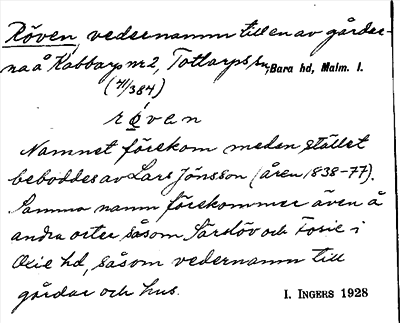 Röven, vedernamn till en av gårdar-
na å Kabbarp nr 2, Tottarps sn, Bara hd, Malm. l.
(41/384)
röven
Namnet förekom medan stället
beboddes av Lars Jönsson (åren 1838-77).
Samma namn förekommer även å
andra orter såsom Särslöv och Fosie i
Oxie hd, såsom vedernamn till
gårdar och hus.
I. INGERS 1928